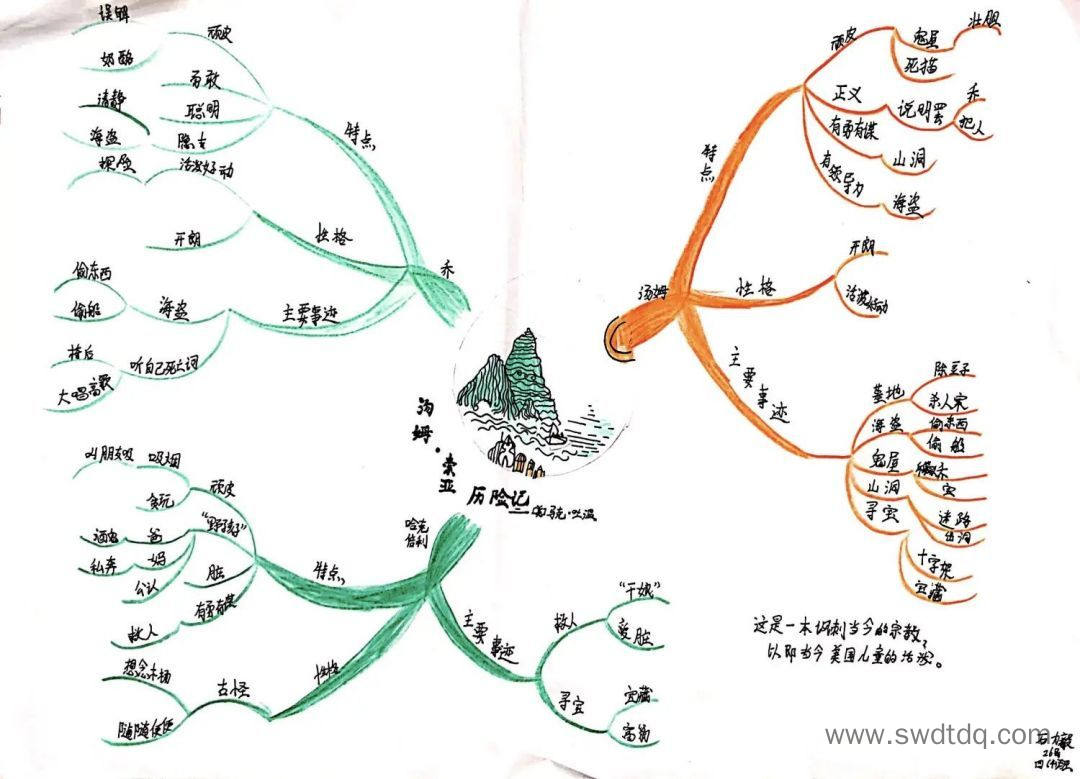 误解
顽皮
奶酪
勇敢
清静
聪明
海盗
隐士
探险
活泼好动
特点
开朗
性格
乔
偷东西
偷船
海盗
主要事迹
听自己死亡词
大唱高歌
顽皮
鬼屋
壮胆
死猫
正义
说明罪
乔
犯人
有勇有谋
山洞
有领导力
海盗
特点
汤姆
性格
开朗
活泼好动
主要事迹
墓地
除豆子
杀人案
海盗
偷东西
偷船
鬼屋
宝
山洞
迷路
出洞
寻宝
十字架
宝藏
汤姆·索亚
历险记
——马克·吐温
哈克
贝利
吸烟
顽皮
贪玩
“野孩子”
爸
酒鬼
妈
私奔
公认
脏
有勇有谋
救人
特点
性格
古怪
随随便便
主要事迹
救人
寻宝
宝藏
富翁
这是一本讽刺当今的宗教，
以即当今美国儿童的活泼。
www.swdtdq.com
26号